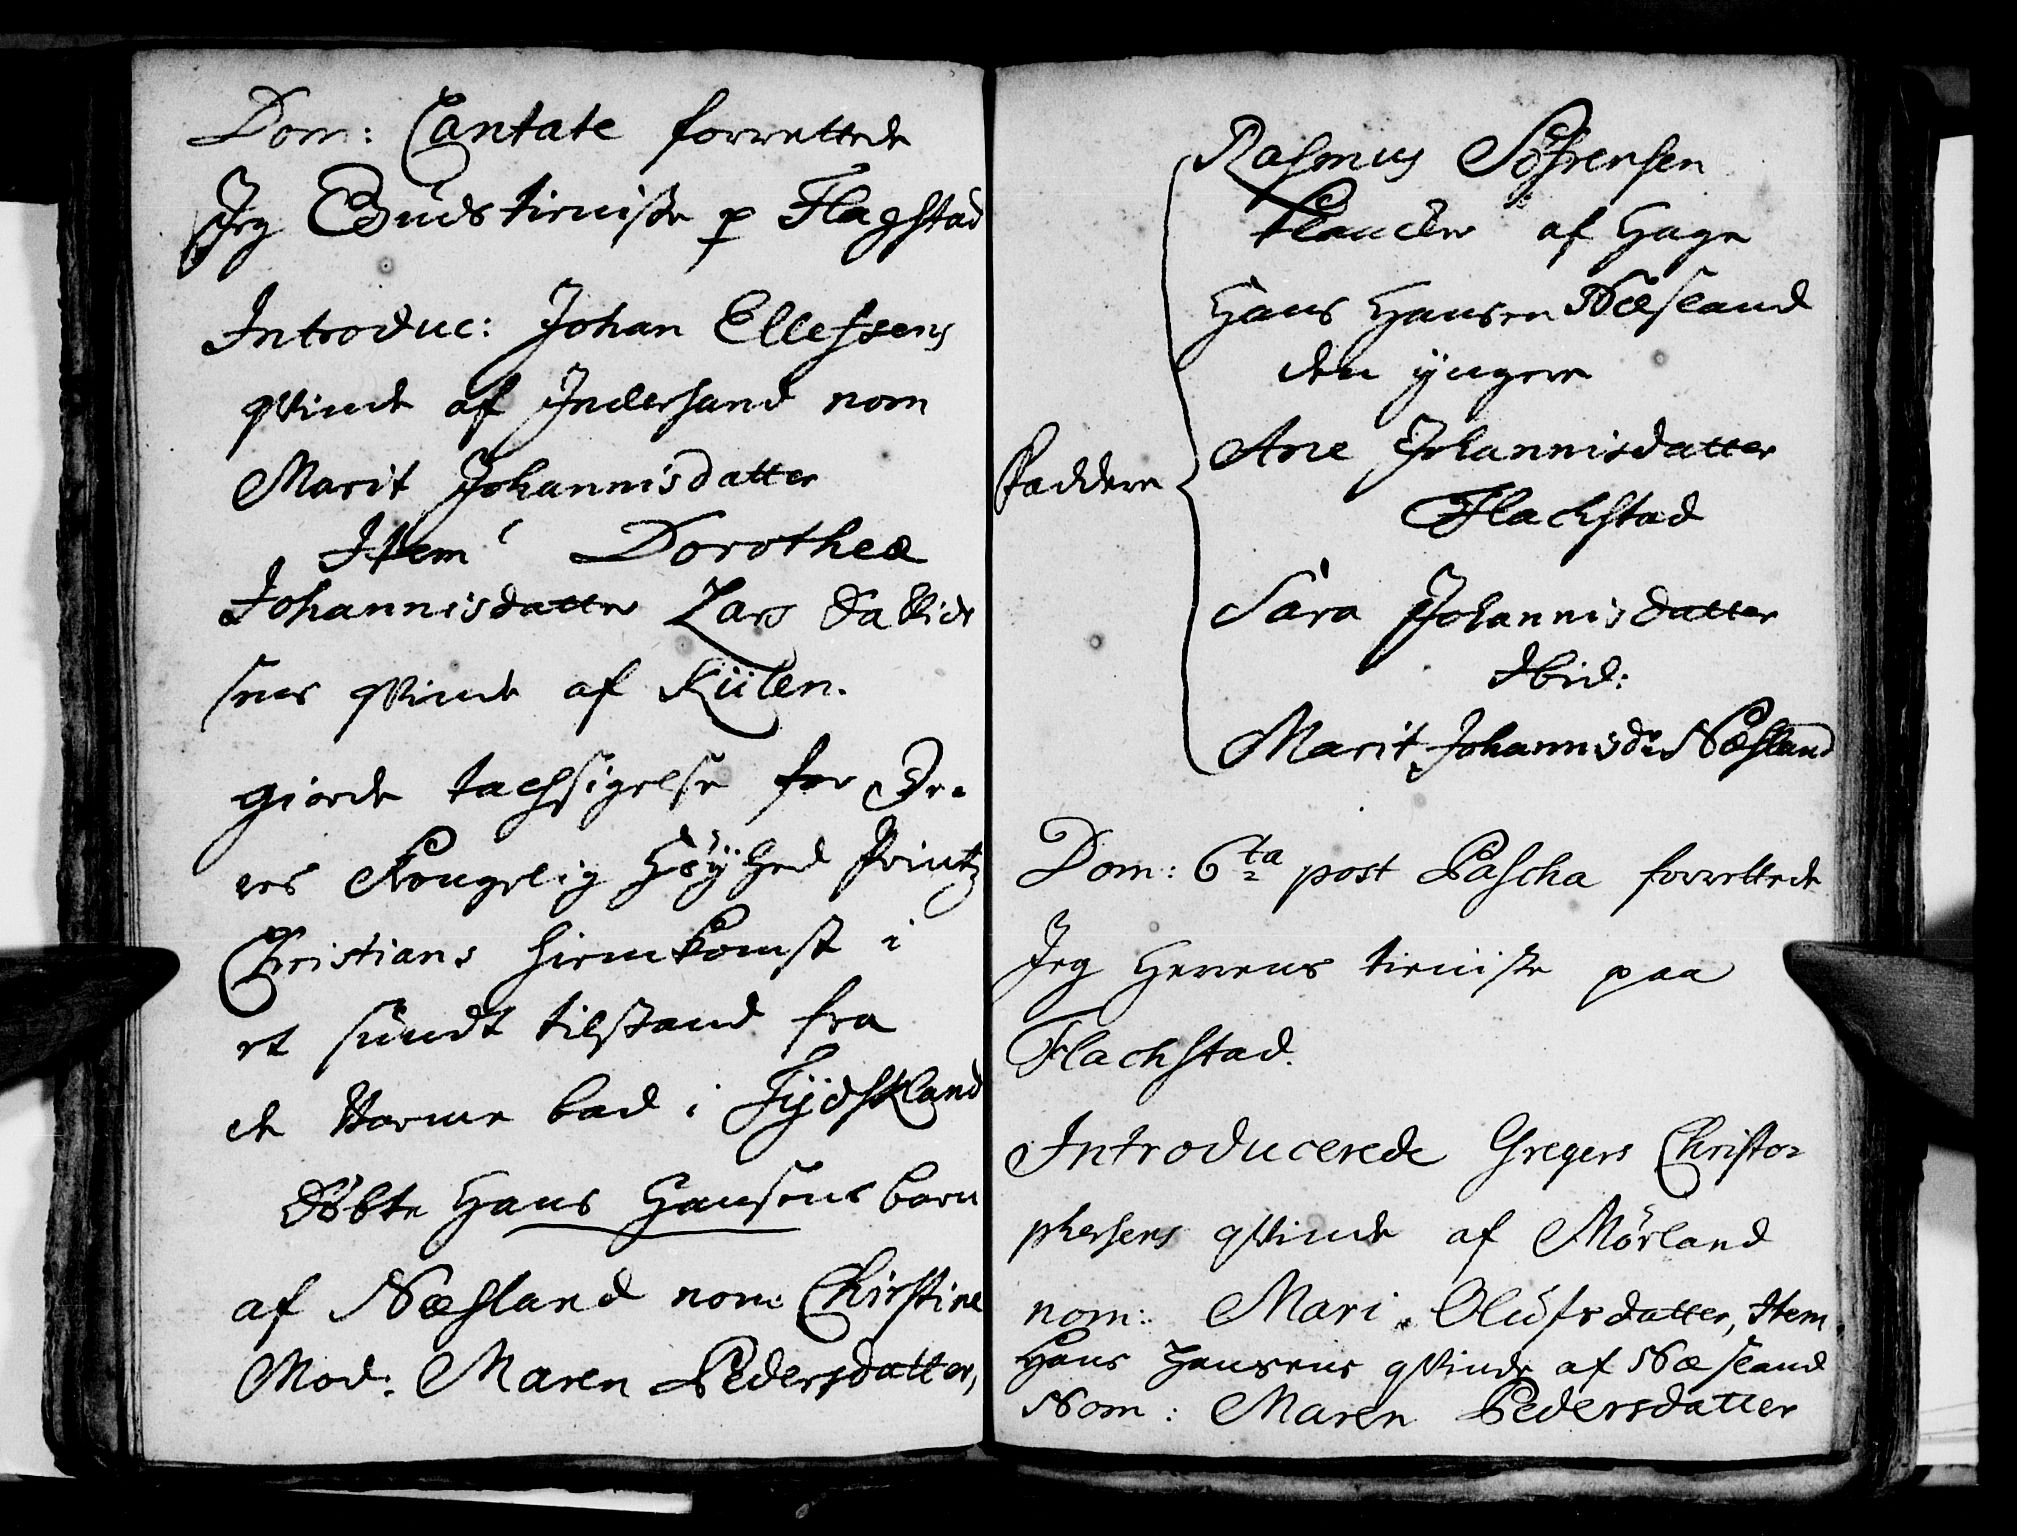 Dom: Cantate forrettede
Jeg Guds tieniste p Flagstad
Introduc: Johan Ellefsens
qvinde af Indersand nom
Marit Johannisdatter
Item Dorothea
Johannisdatter Lars Davids
sens qvinde af Kiilen.
giorde tachsigelse for De-
res Kongelig Høyhed Printz
Christians hiemkomst i
et sundt tilstand fra
de Varme bad i Tÿdskland
Døbte Hans Hansens barn
af Næsland nom: Chirstine
Mod: Maren Pedersdatter,
Rasmus Söfrensen
af Hage
Hans Hansen Næsland
den ÿngere
Faddere
Ane Johannisdatter
Flachstad
Sara Johannisdatter
Ibid:
Marit Johannisdr Næsland
Dom: 6ta post Pascha forrettede
Jeg Herrens tieniste paa
Flachstad.
Introducerede Gregers Christo-
phersens qvinde af Mörland
nom: Mari Olufsdatter, Item
Hans Hansens qvinde af Næsland
Nom: Maren Pedersdatter